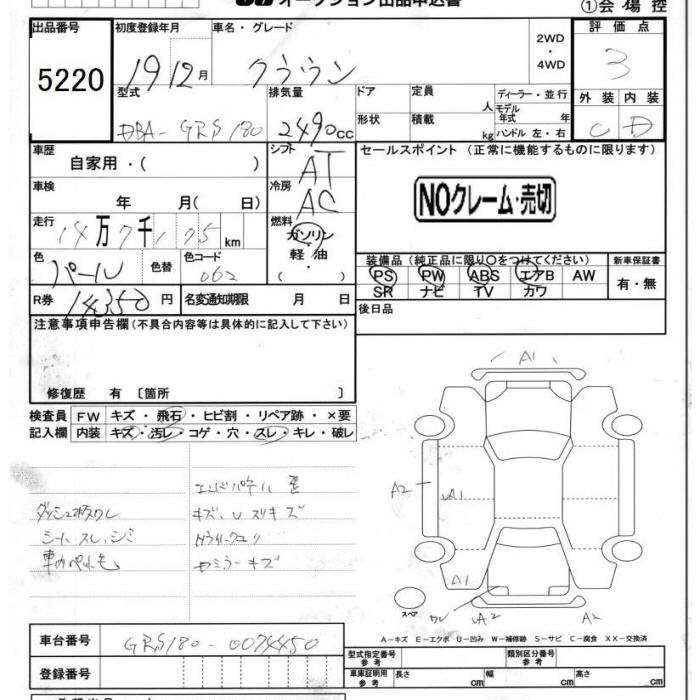 オークション出品申込書
①会場控
出品番号
5220
初度登録年月
19 12月
車名・グレード
クラウン
2WD
・
4WD
評価点
3
型式
DBA-GRS180
排気量
2490cc
ドア
形状
定員
人
積載
kg
ディーラー・並行
モデル年式 年
ハンドル 左・右
外装 内装
C D
車歴
自家用・( )
シフト
AT
セールスポイント (正常に機能するものに限ります)
NOクレーム・売切
車検
年 月( 日)
冷房
AC
走行
14万7千175km
燃料
ガソリン
軽油
( )
色
パール
色替
色コード
062
装備品 (純正品に限り○をつけてください)
PS PW ABS エアB AW
SR ナビ TV カワ
新車保証書
有・無
R券
14350円
名変通知期限 月 日
後日品
注意事項申告欄(不具合内容等は具体的に記入して下さい)
修復歴 有 〔箇所 〕
検査員 FW キズ・飛石・ヒビ割・リペア跡・×要
記入欄 内装 キズ・汚レ・コゲ・穴・スレ・キレ・破レ
シートスレ、シミ
キズ、Uスリキズ
ミラーキズ
A1
A2
UA1
A1
UA2
A2
スペア
A-キズ E-エクボ U-凹み W-補修跡 S-サビ C-腐食 XX-交換済
車台番号
GRS180-0074450
登録番号
型式指定番号
参考
類別区分番号
参考
車庫証明用
参考
長さ cm
幅 cm
高さ cm